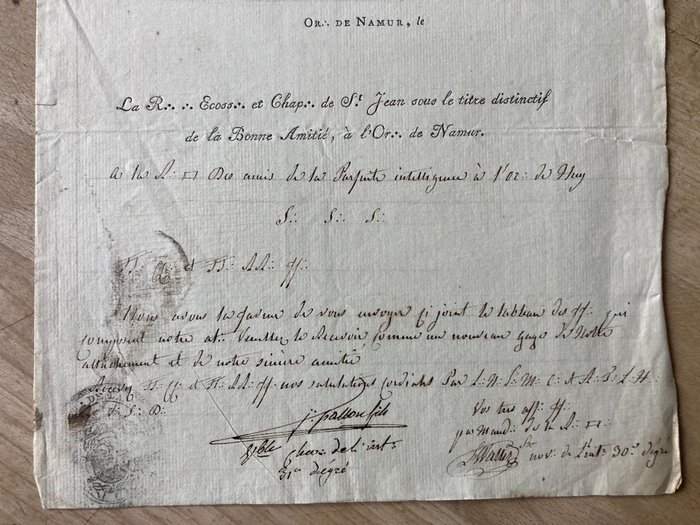 Or∴ de Namur, le
La R∴ ∴ Ecoss∴ et Chap∴ de St. Jean sous le titre distinctif
de la Bonne Amitié, à l'Or∴ de Namur.
a la R∴ □ Des amis de la Parfaite intelligence à l'or∴ de Huy
S∴ S∴ S∴
et RR∴ ff∴
Nous avons la faveur de vous envoyer ci joint le tableau des ff∴ qui
composent notre at∴ Veuillez le recevoir comme un nouveau gage de Notre
attachement et de notre sincère amitié
ff∴ nos salutations cordiales Par L∴ N∴ S∴ M∴ C∴ et A∴ L∴ H∴
Vos très aff∴ ff∴
par Mand∴ de la R∴ □∴
fils
Chev∴
31e dégré
30e dégré